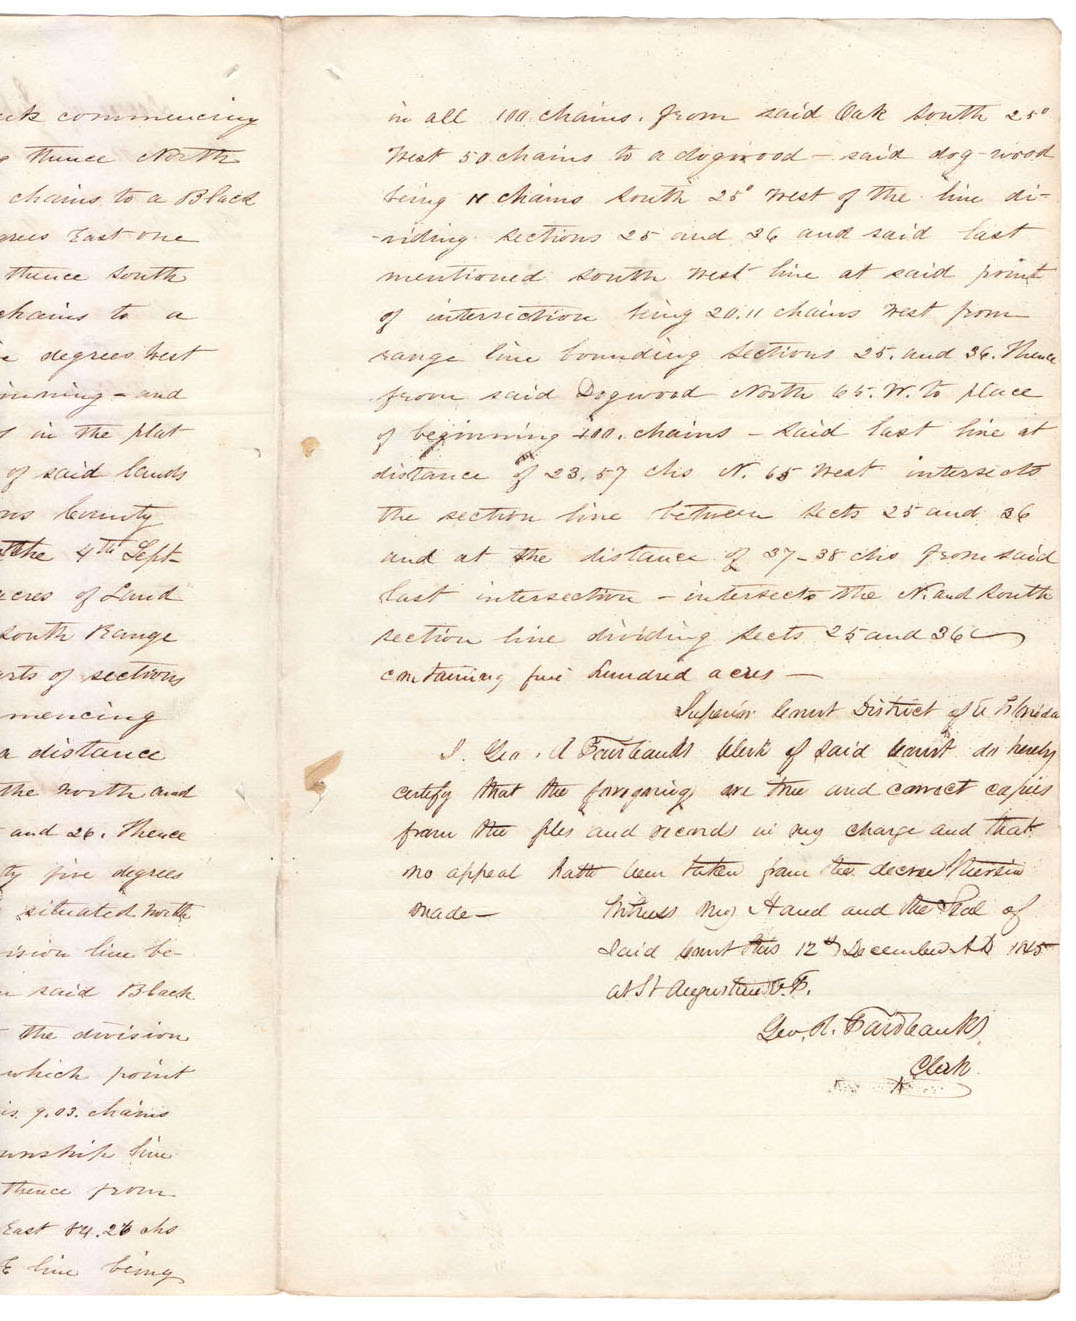 commencing
thence North
chains to a Black
grees East one
thence South
chains to a
degrees West
inning - and
in the plat
of said lands
ns County
the 4th Sept-
acres of Land
South Range
arts of sections
mencing
a distance
the north and
and 26. Thence
ty five degrees
situated north
ision line be-
said Black
the division
which point
is 9.03. chains
wnship line
thence from
East 84.26 chs
E line being
in all 100 chains. from said Oak South 25°
West 50 chains to a dogwood - said dog-wood
being 11 chains South 25° West of the line di-
-viding Sections 25 and 36 and said last
mentioned South West line at said point
of intersection being 20.11 chains West from
range line bounding Sections 25. and 36. Thence
from said Dogwood North 65. W. to place
of beginning 100. chains - Said last line at
distance of 23.57 chs N. 65 West intersects
the section line between Sects 25 and 36
and at the distance of 37-38 chs from said
last intersection - intersects the N. and South
section line dividing Sects 25 and 36
containing five hundred acres -
Superior Court District of E Florida
I. Geo. R Fairbanks Clerk of Said Court do hereby
certify that the foregoing are true and correct copies
from the files and records in my charge and that
no appeal hath been taken from the decree therein
made -
Witness My Hand and the Seal of
Said Court this 12th December AD 1845
at St Augustine E. F.
Geo. R. Fairbanks,
Clerk.